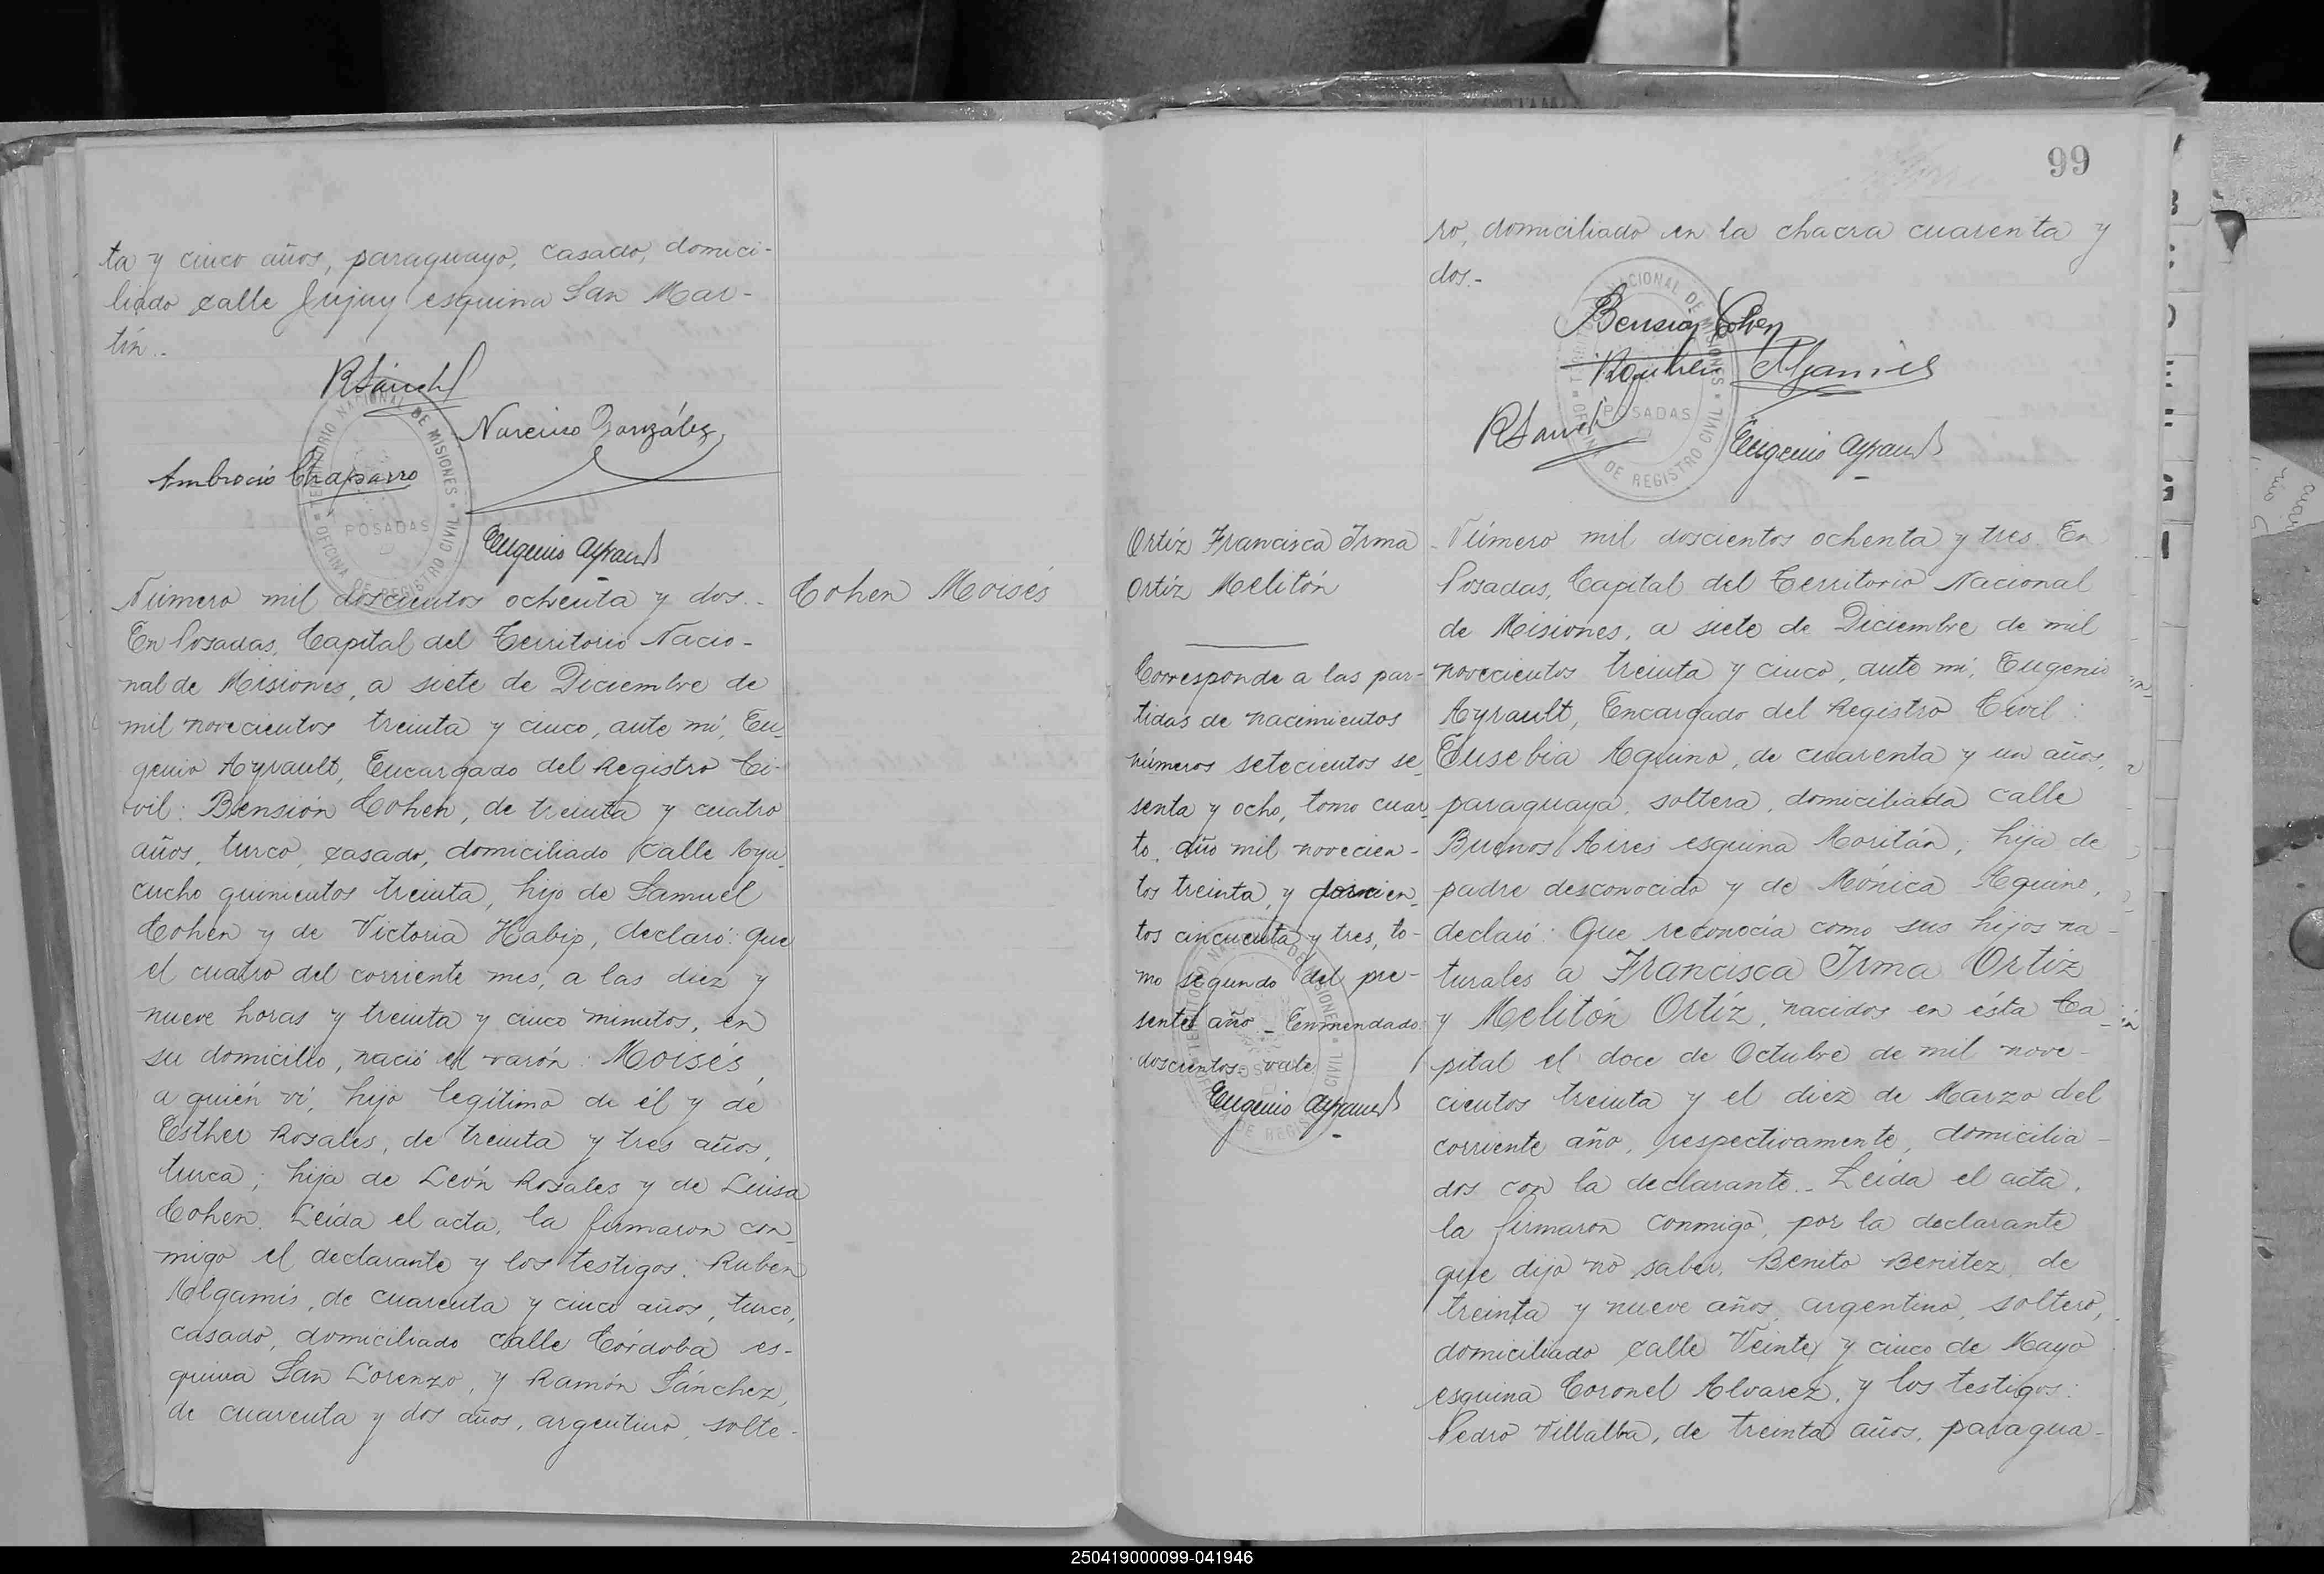 ta y cinco años, paraguayo, casado, domici-
liado calle Jujuy esquina San Mar-
tín.-
RSánchez
Narciso González
Ambrocio Chaparro
TERRITORIO NACIONAL DE MISIONES
POSADAS
OFICINA DE REGISTRO CIVIL
Eugenio Ayrault
Número mil doscientos ochenta y dos.-
Cohen Moisés
En Posadas, Capital del Territorio Nacio-
nal de Misiones, a siete de Diciembre de
mil novecientos treinta y cinco, ante mí, Eu-
genio Ayrault, Encargado del Registro Ci-
vil: Bensión Cohen, de treinta y cuatro
años, turco, casado, domiciliado calle Aya-
cucho quinientos treinta, hijo de Samuel
Cohen y de Victoria Habip, declaró: Que
el cuatro del corriente mes, a las diez y
nueve horas y treinta y cinco minutos, en
su domicilio, nació el varón: Moisés,
a quién ví, hijo legítimo de él y de
Esther Rosales, de treinta y tres años,
turca; hija de León Rosales y de Luisa
Cohen. Leída el acta, la firmaron con-
migo el declarante y los testigos: Rubén
Algamis, de cuarenta y cinco años, turco,
casado, domiciliado calle Córdoba es-
quina San Lorenzo, y Ramón Sánchez,
de cuarenta y dos años, argentino, solte-
99
ro, domiciliado en la chacra cuarenta y
dos.-
Bensión Cohen
Rouben Algamis
RSánchez
Eugenio Ayrault
TERRITORIO NACIONAL DE MISIONES
POSADAS
OFICINA DE REGISTRO CIVIL
Ortíz Francisca Irma
Ortíz Melitón
Corresponde a las par-
tidas de nacimientos
números setecientos se-
senta y ocho, tomo cuar-
to, año mil novecien-
tos treinta, y doscien-
tos cincuenta y tres, to-
mo segundo del pre-
sente año - Enmendado:
doscientos: vale
Eugenio Ayrault
Número mil doscientos ochenta y tres. En
Posadas, Capital del Territorio Nacional
de Misiones, a siete de Diciembre de mil
novecientos treinta y cinco, ante mí, Eugenio
Ayrault, Encargado del Registro Civil:
Eusebia Aquino, de cuarenta y un años,
paraguaya, soltera, domiciliada calle
Buenos Aires esquina Moritán, hija de
padre desconocido y de Mónica Aquino,
declaró: Que reconocía como sus hijos na-
turales a Francisca Irma Ortíz
y Melitón Ortíz, nacidos en ésta Ca-
pital el doce de Octubre de mil nove-
cientos treinta y el diez de Marzo del
corriente año, respectivamente, domicilia-
dos con la declarante.- Leída el acta,
la firmaron conmigo, por la declarante
que dijo no saber, Benito Benítez, de
treinta y nueve años, argentino, soltero,
domiciliado calle Veinte y cinco de Mayo
esquina Coronel Alvarez, y los testigos:
Pedro Villalba, de treinta años, paragua-
250419000099-041946